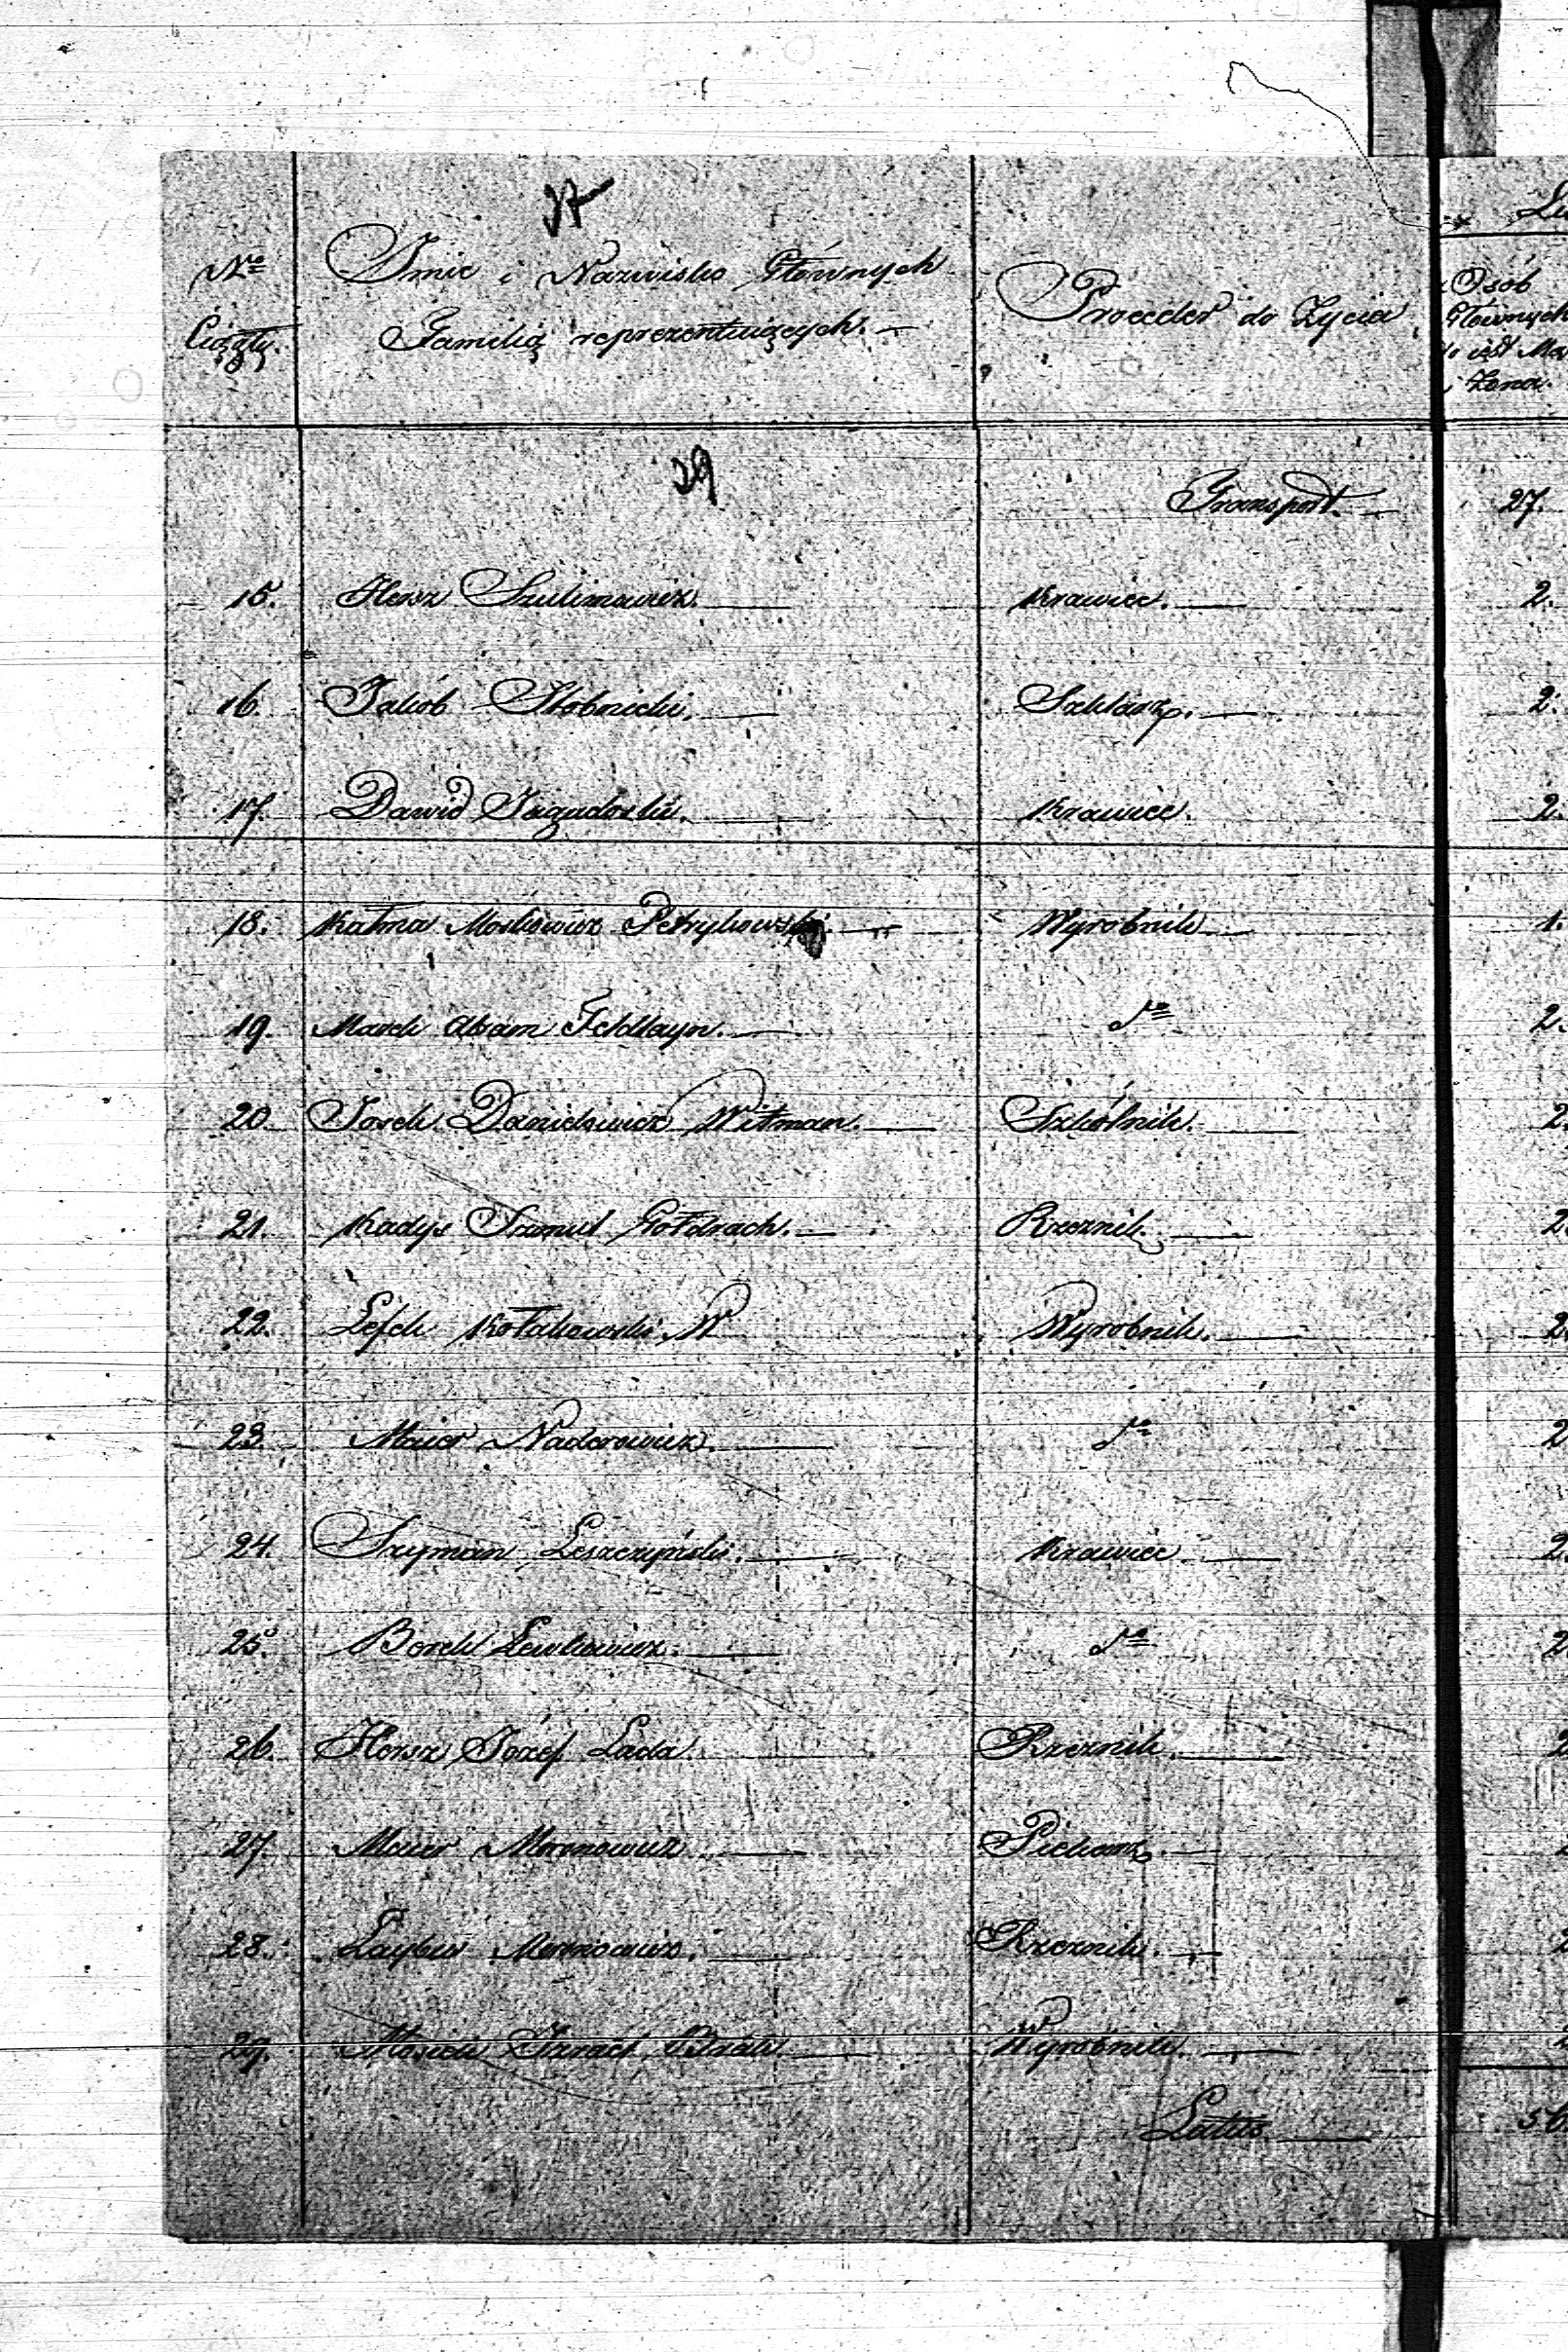 37
No Ciągły.
Imie i Nazwisko Głównych
Familią reprezentuiących.
Proceder do Życia
Osób
Głównych
to iest
i Żona.
39
Transport 27.
15. Hersz Szulimowicz. Krawiec. 2.
16. Jakób Słobnicki. Szklarz. 2.
17. Dawid Jagudoski. Krawiec. 2.
18. Kałma Moskowicz Petrykowski. Wyrobnik 1.
19. Morek Abram Feldlayn. do 2.
20. Josek Danielowicz Witman. Szkólnik. 2.
21. Kadys Szmul Gołdrach. Rzeznik. 2
22. Lejek Kołakowski W Wyrobnik. 2.
23. Maier Naderowicz. do 2
24. Szyman Leszczyński. Krawiec 2.
25. Borek Lewkowicz. do 2
26. Hersz Józef Lada. Rzeznik. 2
27. Maier Moronowicz Piekarz.
28. Laybus Moronowicz. Rzeznik.
29. Mosiek Izrael Wyrobnik.
Latus 50.